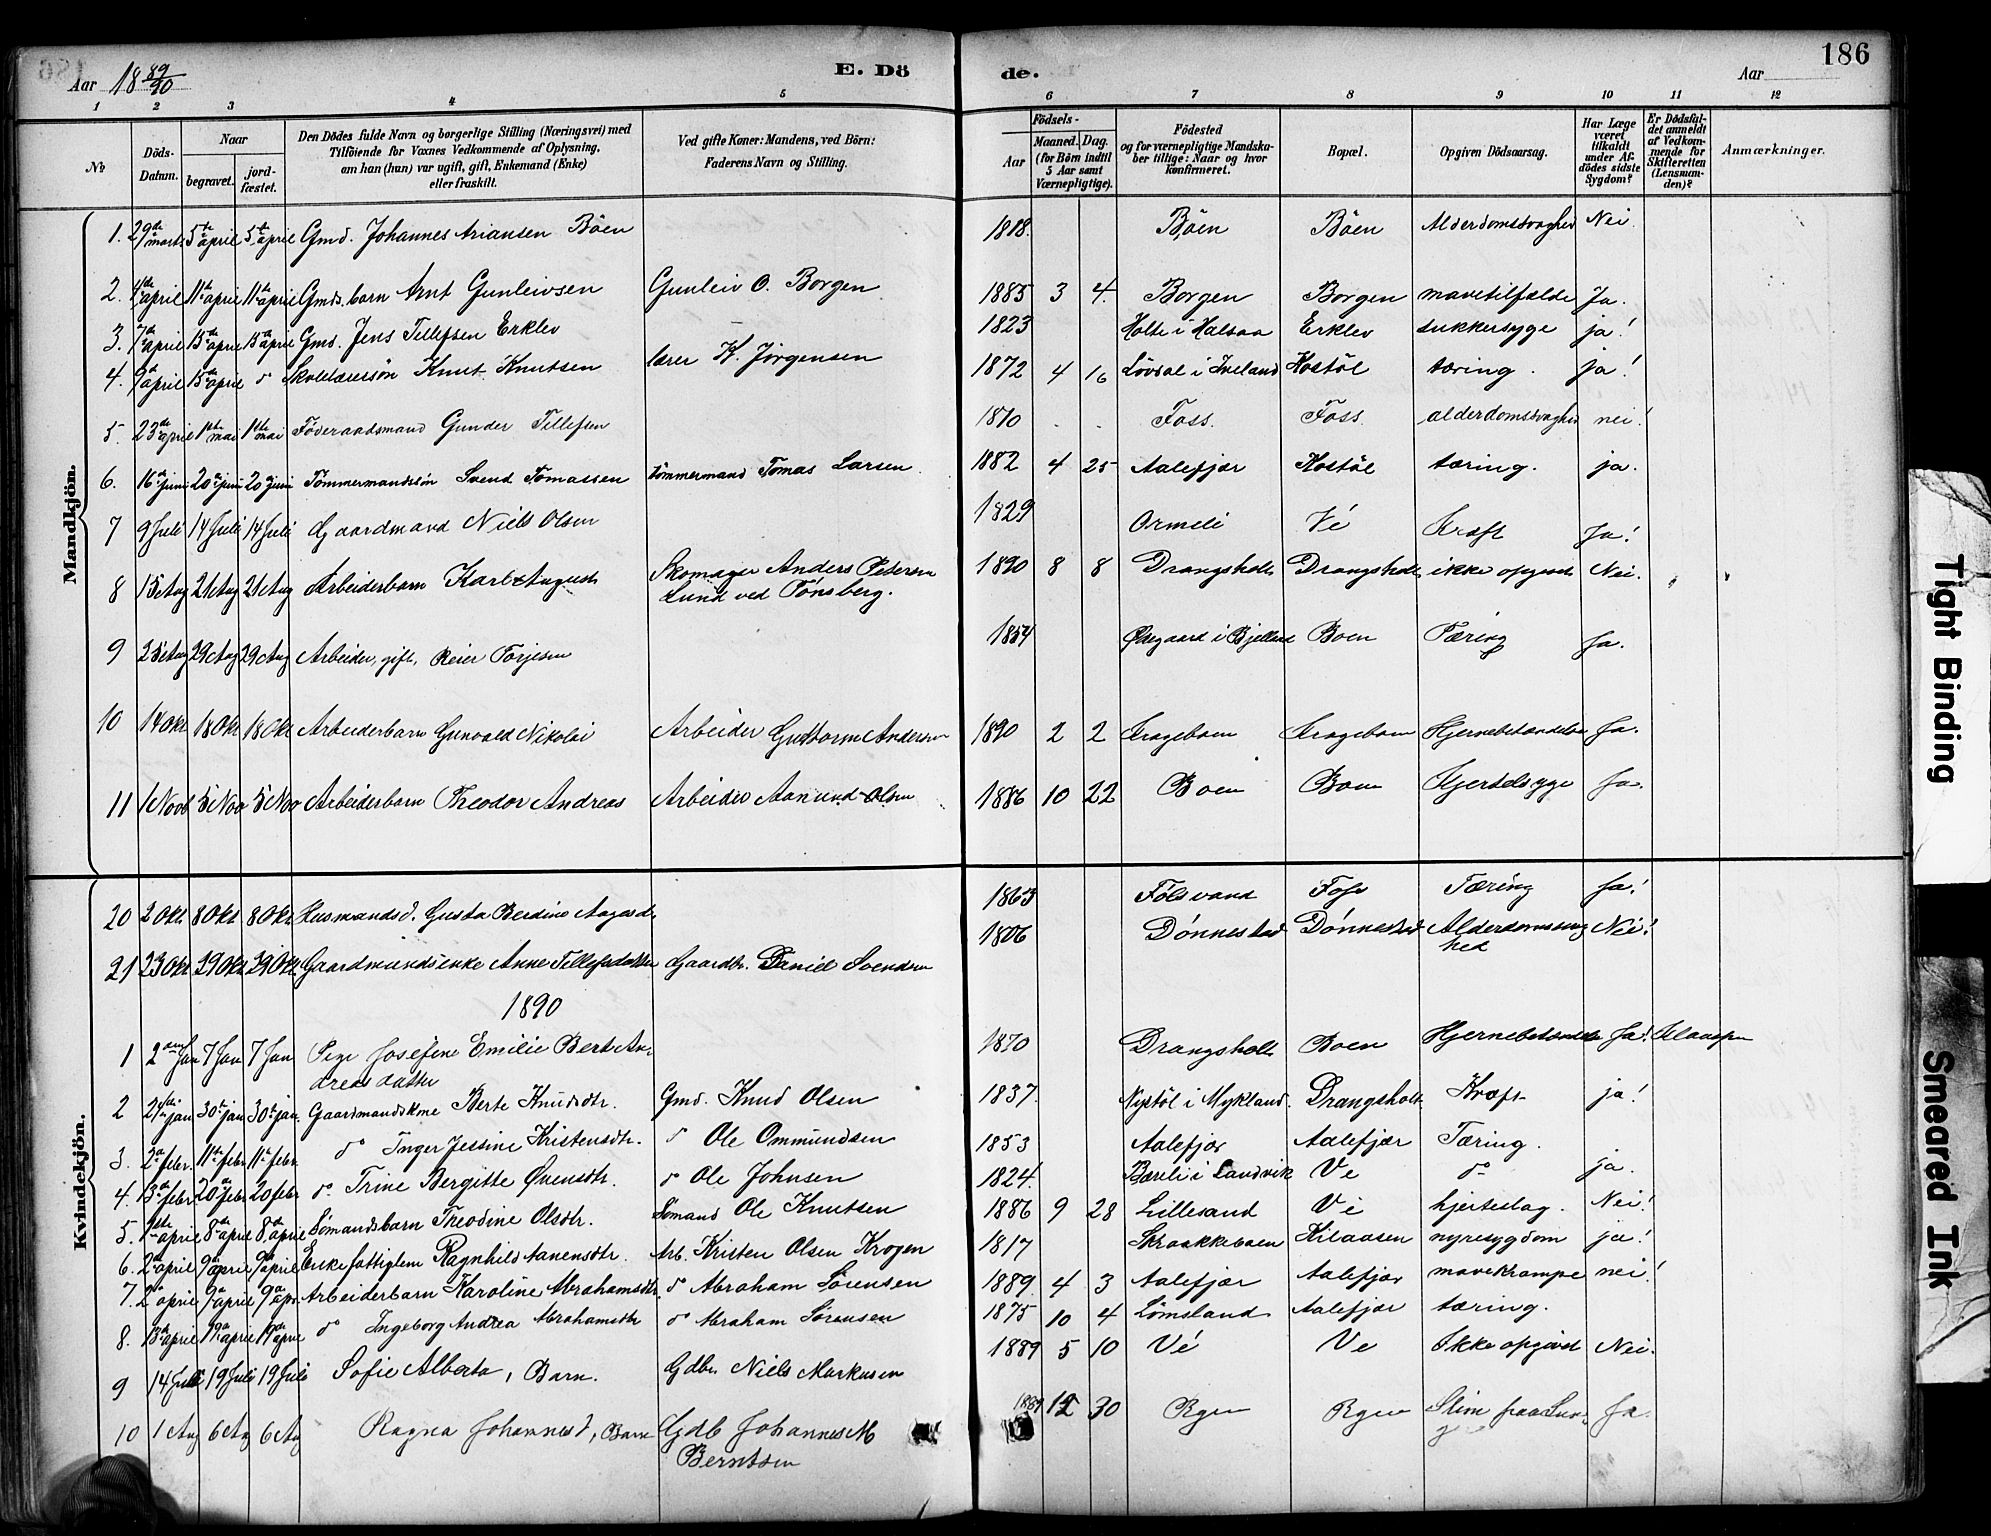 186
Aar 18 89/90 E. Dö de. Aar
1 2 3 4 5 6 7 8 9 10 11 12
№ Döds-Datum. Naar begravet. jordfæstet. Den Dödes fulde Navn og borgerlige Stilling (Næringsvei) med Tilföiende for Voxnes Vedkommende af Oplysning, om han (hun) var ugift, gift, Enkemand (Enke) eller fraskilt. Ved gifte Koner: Mandens, ved Börn: Faderens Navn og Stilling. Födsels- Aar Maaned. Dag. (for Börn indtil 5 Aar samt Værnepligtige). Födested og for værnepligtige Mandskaber tillige: Naar og hvor konfirmeret. Bopæl. Opgiven Dödsaarsag. Har Læge været tilkaldt under Afdödes sidste Sygdom? Er Dödsfaldet anmeldt af Vedkommende for Skifteretten (Lensmanden)? Anmærkninger.
Mandkjön.
1. 29de marts 5te april 5te april Gmd. Johannes Ariansen Böen 1818. Böen Böen Alderdomssvaghed Nei.
2. 4de april 11te april 11te april Gmds. barn Arnt Gunleivsen Gunleiv O. Borgen 1885 3 4. Borgen Borgen mavetilfælde Ja.
3. 7de april 15de april 15de april Gmd. Jens Tellefsen Erklev 1823 Holte i Halsaa Erklev sukkersyge ja!
4. 9de april 15de april do Skolelærersön Knut Knutsen lærer K. Jørgensen 1872 4 16 Løvdal i Iveland Kostöl tæring. ja!
5. 23de april 1ste mai 1ste mai Föderaadsmand Gunder Tellefsen 1810 . . Foss. Foss. alderdomssvaghed nei!
6. 16de juni 20de juni 20de juni Tömmermandssön Svend Tomassen tömmermand Tomas Larsen. 1882 4 25 Aalefjær Kostöl tæring. ja.
7 9 Juli 14 Juli 14 Juli Gaardmand Niels Olsen 1829 Ormeli Vé Kræft Ja!
8 15 Aug 21 Aug 21 Aug Arbeiderbarn Karl August Skomager Anders Petersen
Lund ved Tønsberg. 1890 8 8 Drangsholt Drangsholt ikke opgivet Nei.
9 25 Aug 29 Aug 29 Aug Arbeider, gift, Reier Torjesen 1854 Øvegaard i Bjelland Boen Tæring Ja.
10 14 Okt 18 Okt 18 Okt Arbeiderbarn Gunvald Nikolai Arbeider Guttorm Andersen 1890 2 2 Krageboen Krageboen Hjernebetændelse Ja.
11 1 Novb 5 Nov 5 Nov Arbeiderbarn Theodor Andreas Arbeider Aanund Olsen 1886 10 22 Boen Boen Hjertesyge Ja.
Kvindekjön.
20 2 Okt. 8 Okt 8 Okt. Husmandsd. Gusta Berdine Aagesd. 1863 Fölsvand Foss Tæring Ja!
21 23 Okt 29 Okt 29 Okt. Gaardmandsenke Anne Tellefsdatter Gaardbr. Daniel Svendsen 1806 Dönnestad Dönnestad Alderdomssvag
hed Nei!
1890
1 2den Jan 7 Jan 7 Jan Pige Josefine Emilie Bert An-
dreasdatter 1870 Drangsholt Boen Hjernebetændelse Ja!
2 21de jan 30te jan 30te jan. Gaardmandskone Berte Knudsdtr. Gmd. Knud Olsen 1837. Nystöl i Mykland. Drangsholt Kræft ja!
3. 2den febr. 11te febr. 11te febr. do Inger Jessine Kristensdtr. do Ole Ommundsen 1853 Aalefjær Aalefjær Tæring.
4. 13de febr 20de febr 20 febr do. Trine Bergitte Ovensdtr. do Ole Johnsen 1824. Bærelie i Landvik Ve do ja.
5. 1ste april 8de april 8de april Sømandsbarn Theodine Olsdtr. Sømand Ole Knutsen 1886 9 28 Lillesand Ve hjerteslag. Nei!
6. 2den april 9de april 9de april Enke fattiglem Ragnhild Aanensdtr. Arb. Kristen Olsen Krogen 1817 Skraakkeboen Kilaasen nyresygdom ja!
7. 2den april 9de april 9de apr. Arbeiderbarn Karoline Abrahamsdtr. do Abraham Sørensen 1889 4 3 Aalefjær Aalefjær mavekrampe nei!
8. 13de april 19de april 19de april do Ingeborg Andrea Abrahamsdtr do Abraham Sörensen 1875 10 4 Lømsland Aalefjær tæring.
9 14 Juli 19 Juli 19 Juli Sofie Alberta, Barn. Gdbr. Niels Markusen 1889 5 10 Vé Ve Ikke opgivet Nei.
10 1 Aug 6 Aug 6 Aug Ragna Johannesd, Barn Gdb Johannes M
Berntsen 1889 12 30 Rgen Rgen Slim paa Lun-
g Ja.
Tight Binding
Smeared Ink